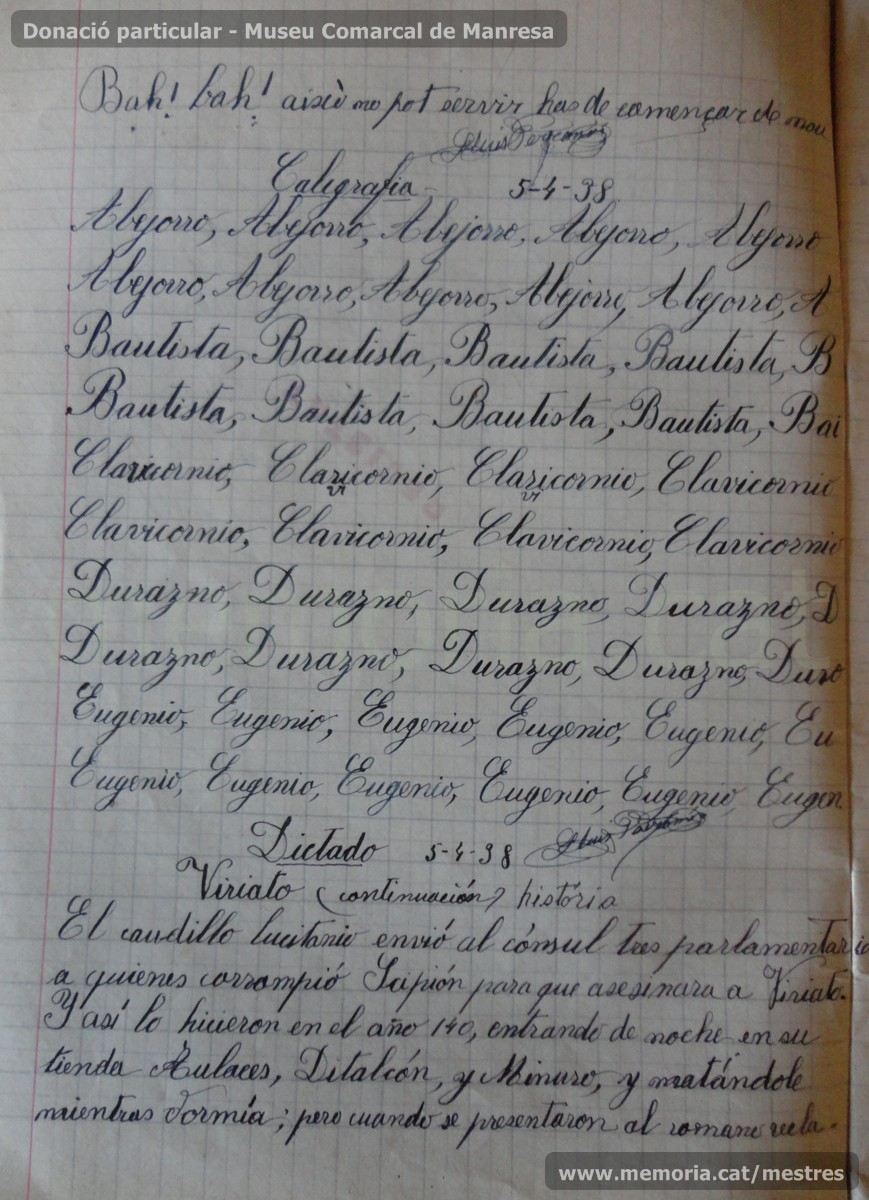 Donació particular - Museu Comarcal de Manresa
Bah! bah! aixó no pot servir has de començar de nou
Caligrafia 5-4-38
Abejorro, Abejorro, Abejorro, Abejorro, Abejorro
Abejorro, Abejorro, Abejorro, Abejorro, Abejorro, A
Bautista, Bautista, Bautista, Bautista, B
Bautista, Bautista, Bautista, Bautista, Bai
Clavicornio, Clavicornio, Clavicornio, Clavicornio
vi vi
Clavicornio, Clavicornio, Clavicornio, Clavicornio
Durazno, Durazno, Durazno, Durazno, D
Durazno, Durazno, Durazno, Durazno, Duro
Eugenio, Eugenio, Eugenio, Eugenio, Eugenio, Eu
Eugenio, Eugenio, Eugenio, Eugenio, Eugenio, Eugen
Dictado 5-4-38 Lluis
Viriato (continuación) história
El caudillo lucitanio envió al cónsul tres parlamentario
a quienes corrompió Sapión para que asesinara a Viriato.
Y así lo hicieron en el año 140, entrando de noche en su
tienda Aulaces, Ditalcón, y Minuro, y matándole
mientras dormía; pero cuando se presentaron al romano recla-
www.memoria.cat/mestres